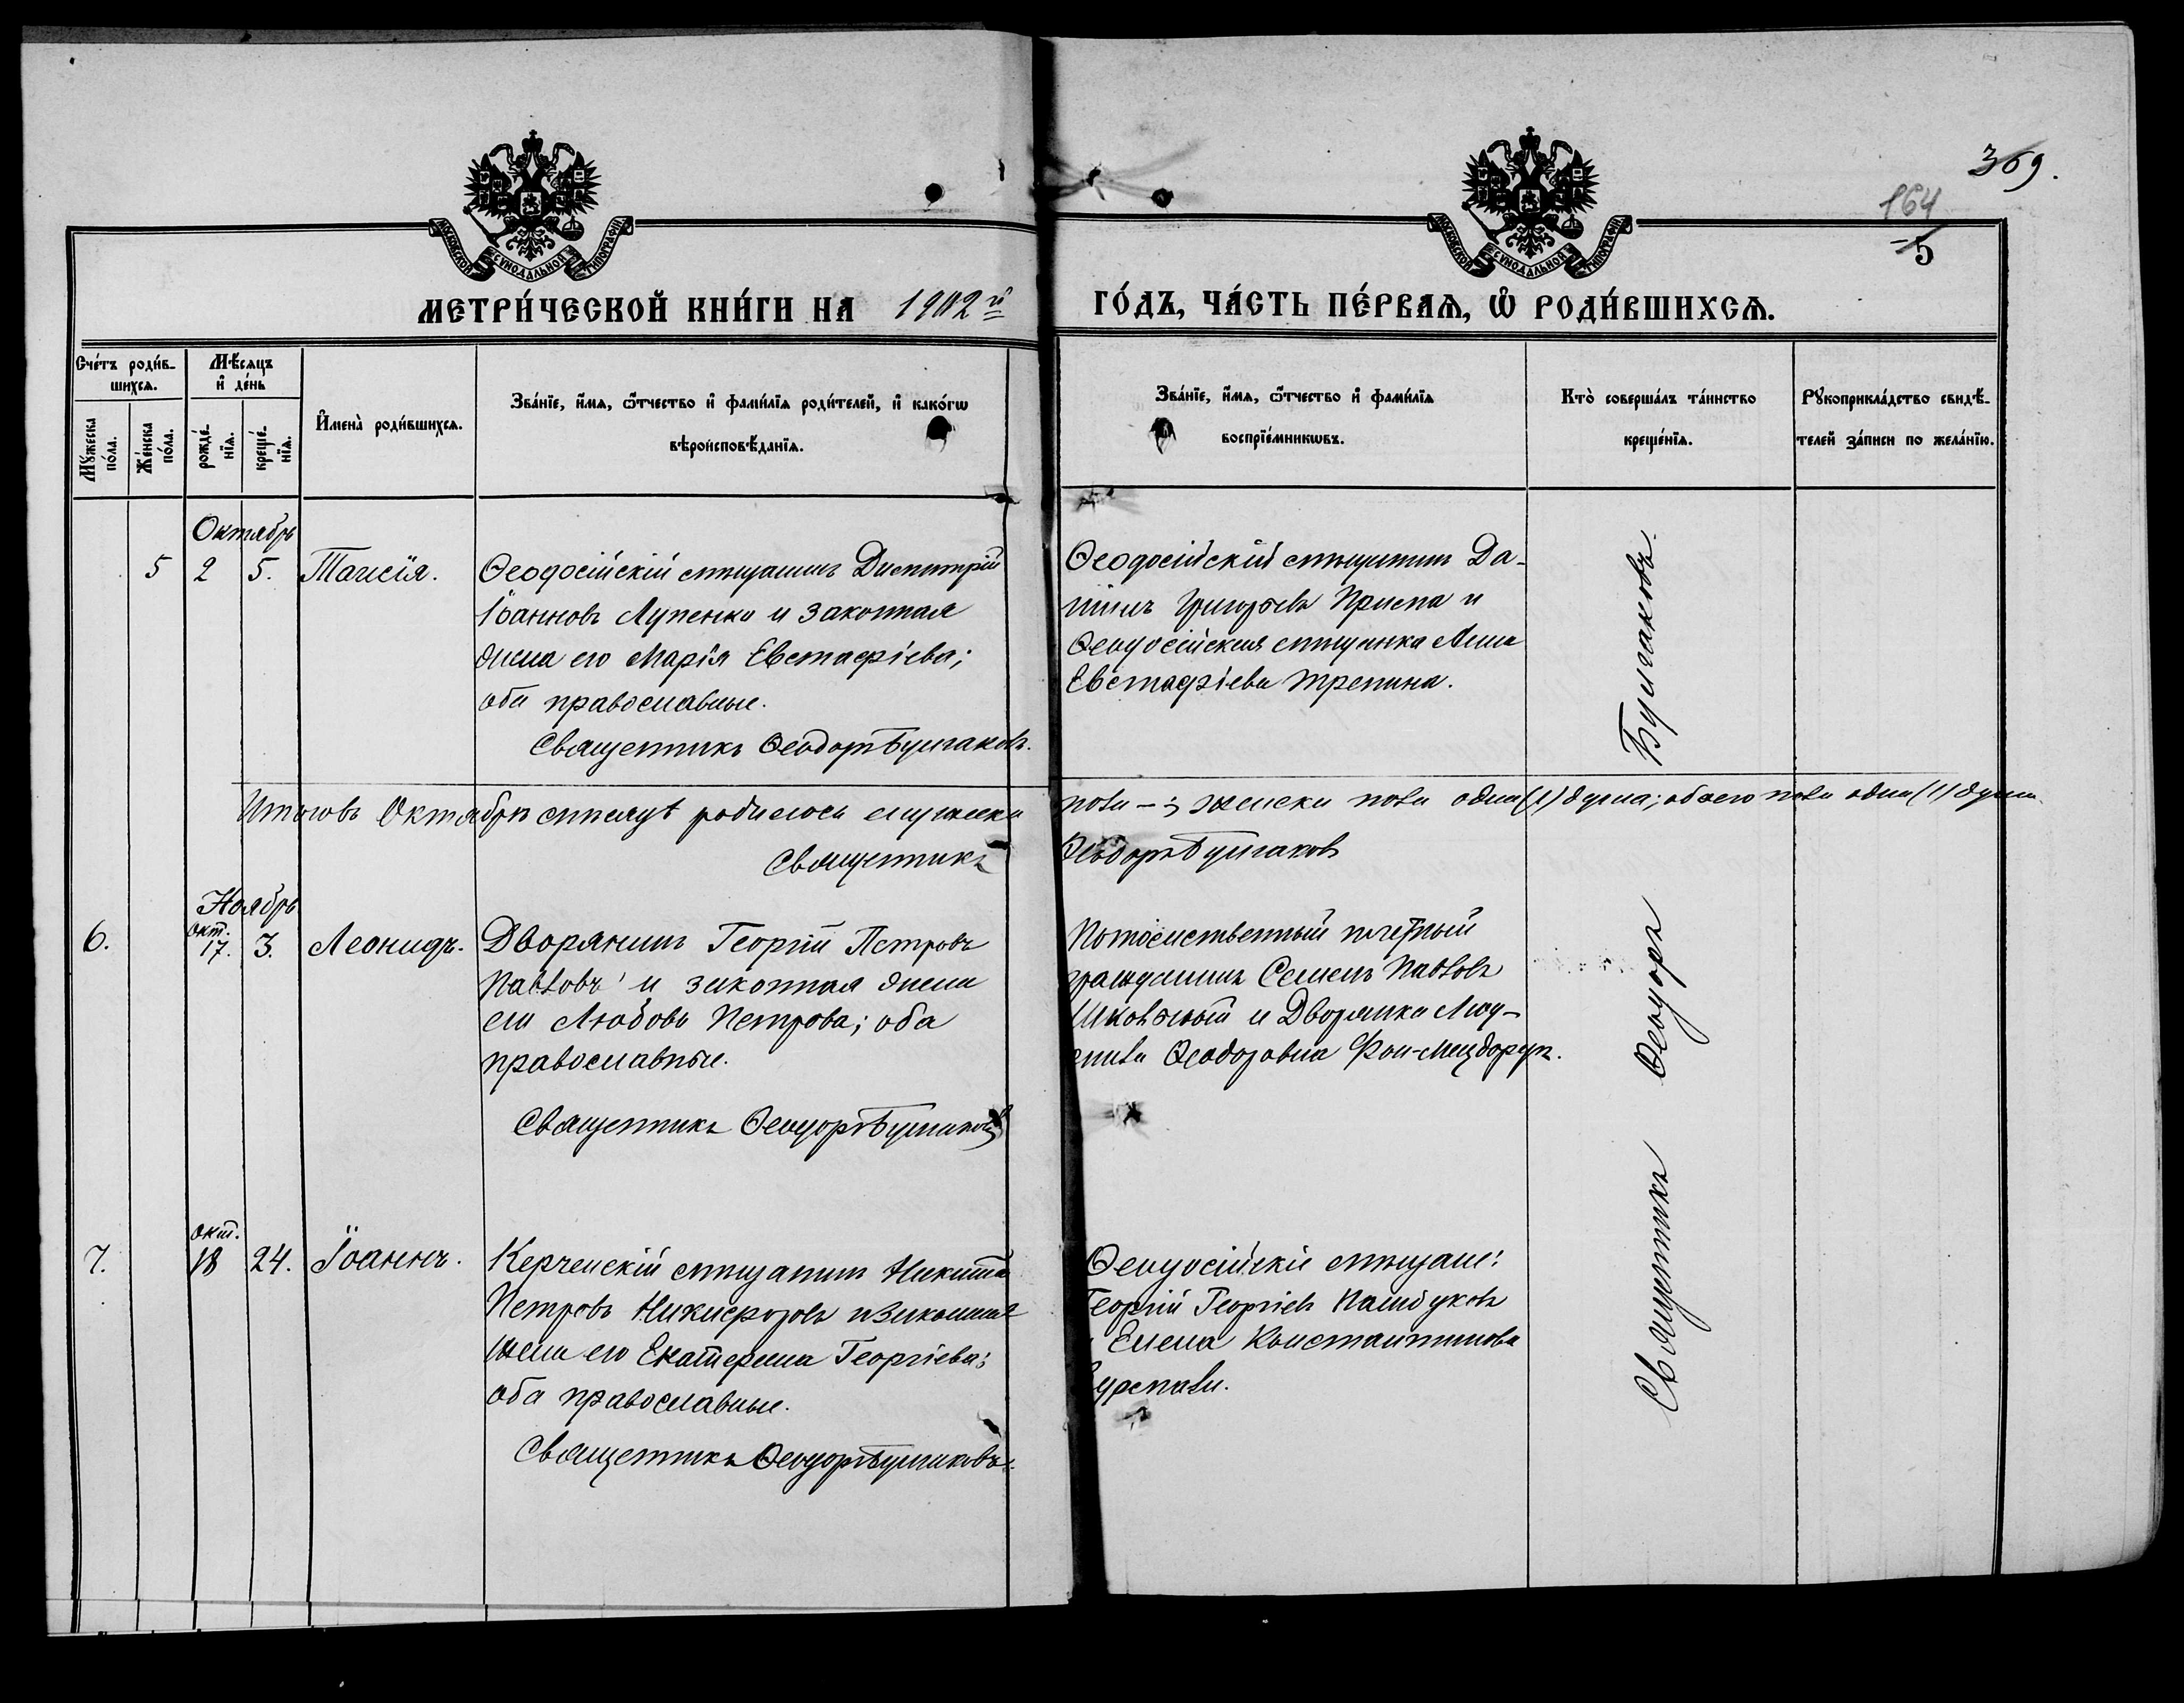 369.
164
5
МОСКОВСКОЙ СѴНОДАЛЬНОЙ ТИПОГРАФІИ
МОСКОВСКОЙ СѴНОДАЛЬНОЙ ТИПОГРАФІИ
МЕТРИ́ЧЕСКОЙ КНИ́ГИ НА 1902й
ГО́ДЪ, ЧА́СТЬ ПЕ́РВАѦ, Ѡ҆ РОДИ́ВШИХСѦ.
Сче́тъ роди́в-
шихсѧ.
Мꙋ́жеска по́ла.
Же́нска по́ла.
Мѣ́сѧцъ
и҆ де́нь
рожде́-
нїѧ.
креще́-
нїѧ.
И҆мена̀ роди́вшихсѧ.
Зва́нїе, и҆́мѧ, ѻ҆́тчество и҆ фами́лїѧ роди́телей, и҆ како́гѡ
вѣроисповѣ́данїѧ.
Зва́нїе, и҆́мѧ, ѻ҆́тчество и҆ фами́лїѧ
воспрїе́мникѡвъ.
Кто̀ соверша́лъ та́инство
креще́нїѧ.
Рꙋкоприкла́дство свидѣ́-
телей за́писи по жела́нїю.
Октябрь
5 2 5. Таисія. Ѳеодосійскій мѣщанинъ Димитрій
Іоанновъ Лупенко и законная
жена его Марія Евстафіева;
оба православные.
Священникъ Ѳеодоръ Булгаковъ.
Ѳеодосійскій мѣщанинъ Да-
ніилъ Григорьевъ Приспа и
Ѳеодосійская мѣщанка Анна
Евстафіева
Итого въ Октябрѣ мѣсяцѣ родилось мужеска пола —; женска пола одна (1) душа; обоего пола одна (1) душа.
Священникъ Ѳеодоръ Булгаковъ
Ноябрь
6. Окт. 17. 3. Леонидъ. Дворянинъ Георгій Петровъ
Павловъ и законная жена
его Любовь Петрова; оба
православные.
Священникъ Ѳеодоръ Булгаковъ
Потомственный почетный
гражданинъ Семенъ Павловъ
и Дворянка Люд-
мила Ѳеодоровна Фонъ-Мецдорфъ.
7. Окт. 18 24. Іоаннъ. Керченскій мѣщанинъ Никита
Петровъ Никифоровъ и законная
жена его Екатерина Георгіева;
оба православные.
Священникъ Ѳеодоръ Булгаковъ.
Ѳеодосійскіе мѣщане:
Георгій Георгіевъ
и Елена Константинова
Священникъ Ѳеодоръ Булгаковъ.